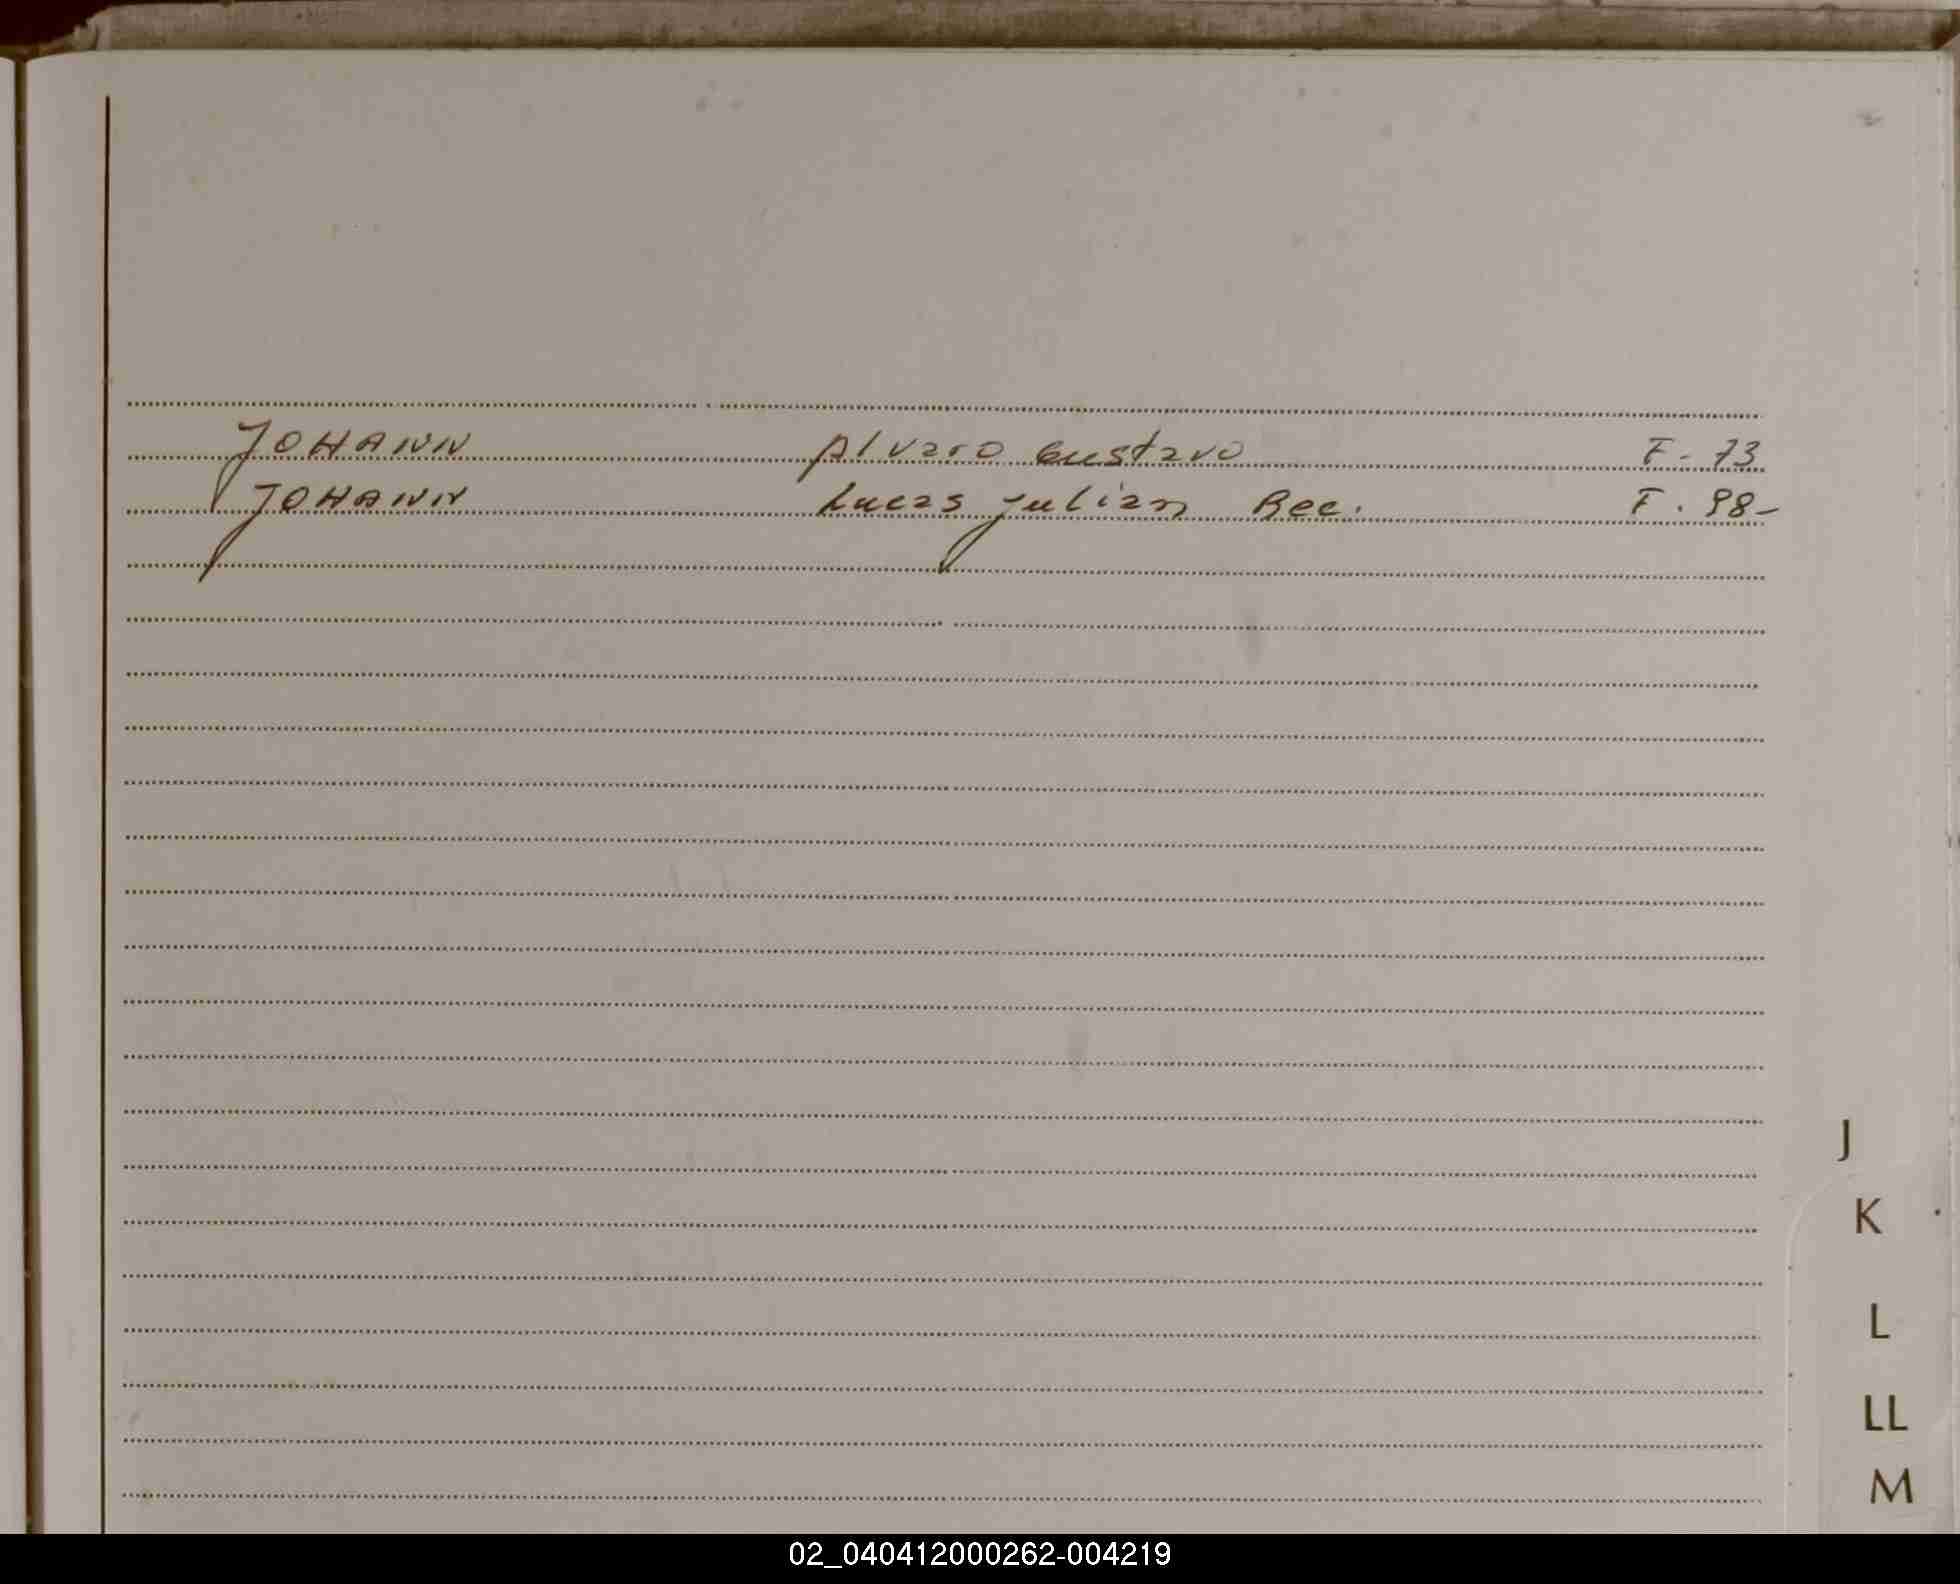 JOHANN Alvaro Gustavo F-73
JOHANN Lucas Julian Rec. F.98-
J
K
L
LL
M
02_040412000262-004219